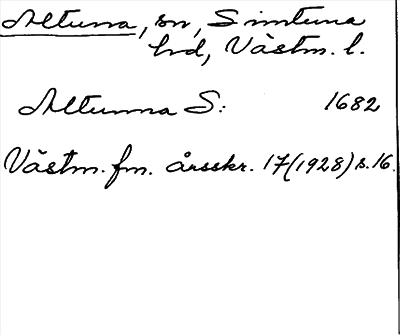 Altuna, sn, Simtuna
hd, Västm. l.
Altunna S: 1682
Västm. fm. årsskr. 17(1928) s. 16.